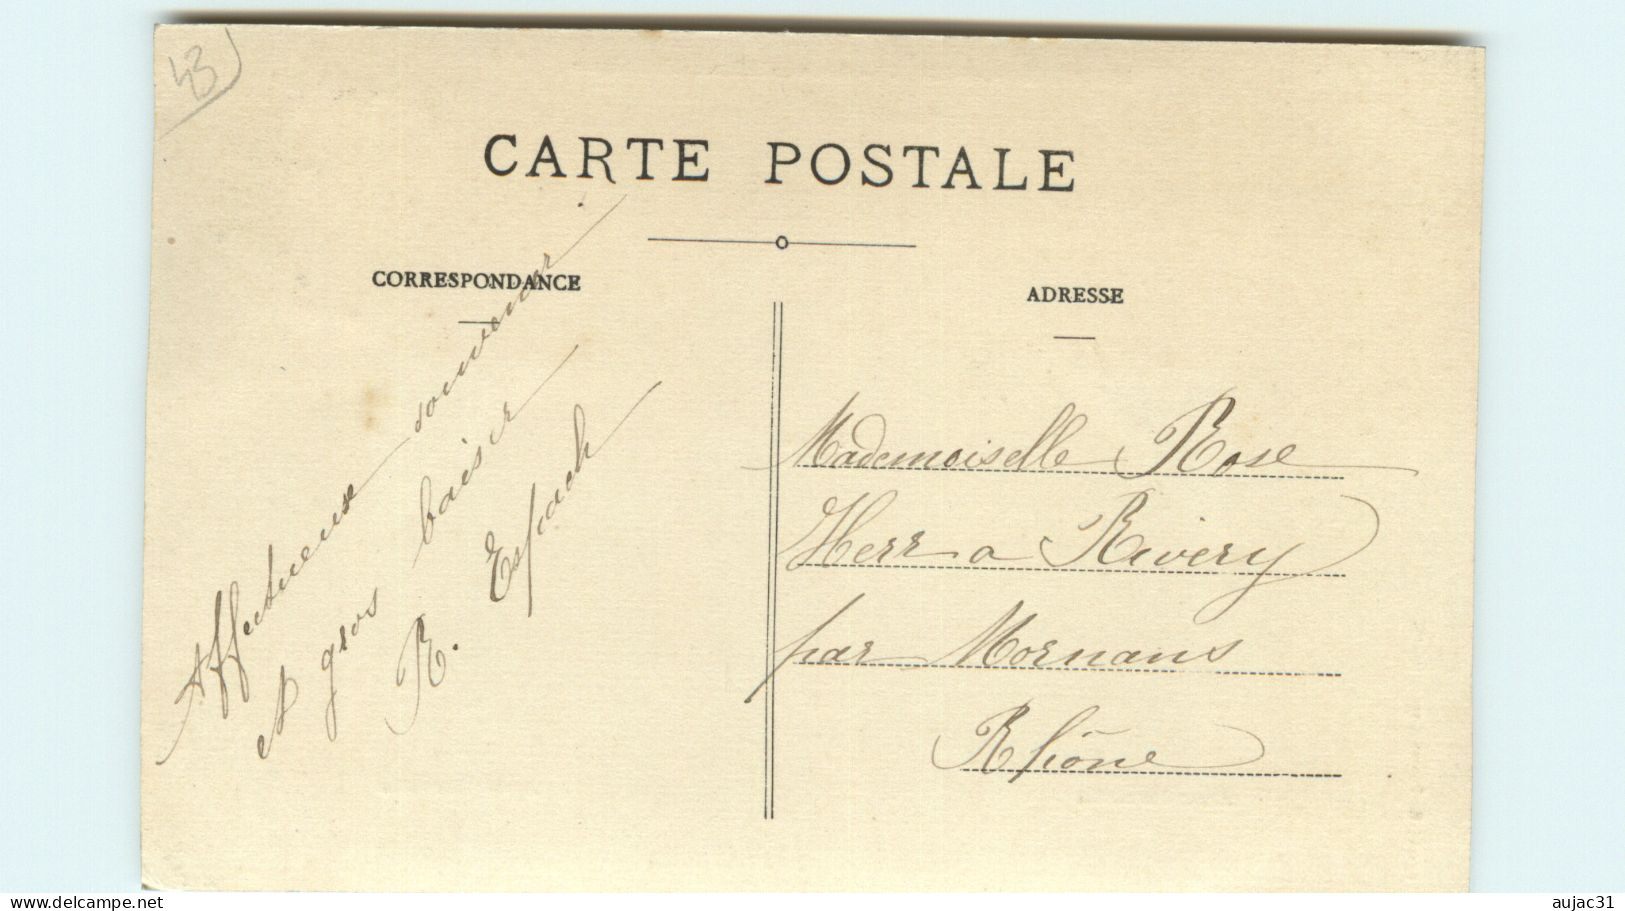 43
CARTE POSTALE
CORRESPONDANCE
Affectueux souvenir
et gros baiser
R. Espach
ADRESSE
Mademoiselle Rose
Herr a Rivery
par Mornans
Rhône
delcampe.net
aujac31